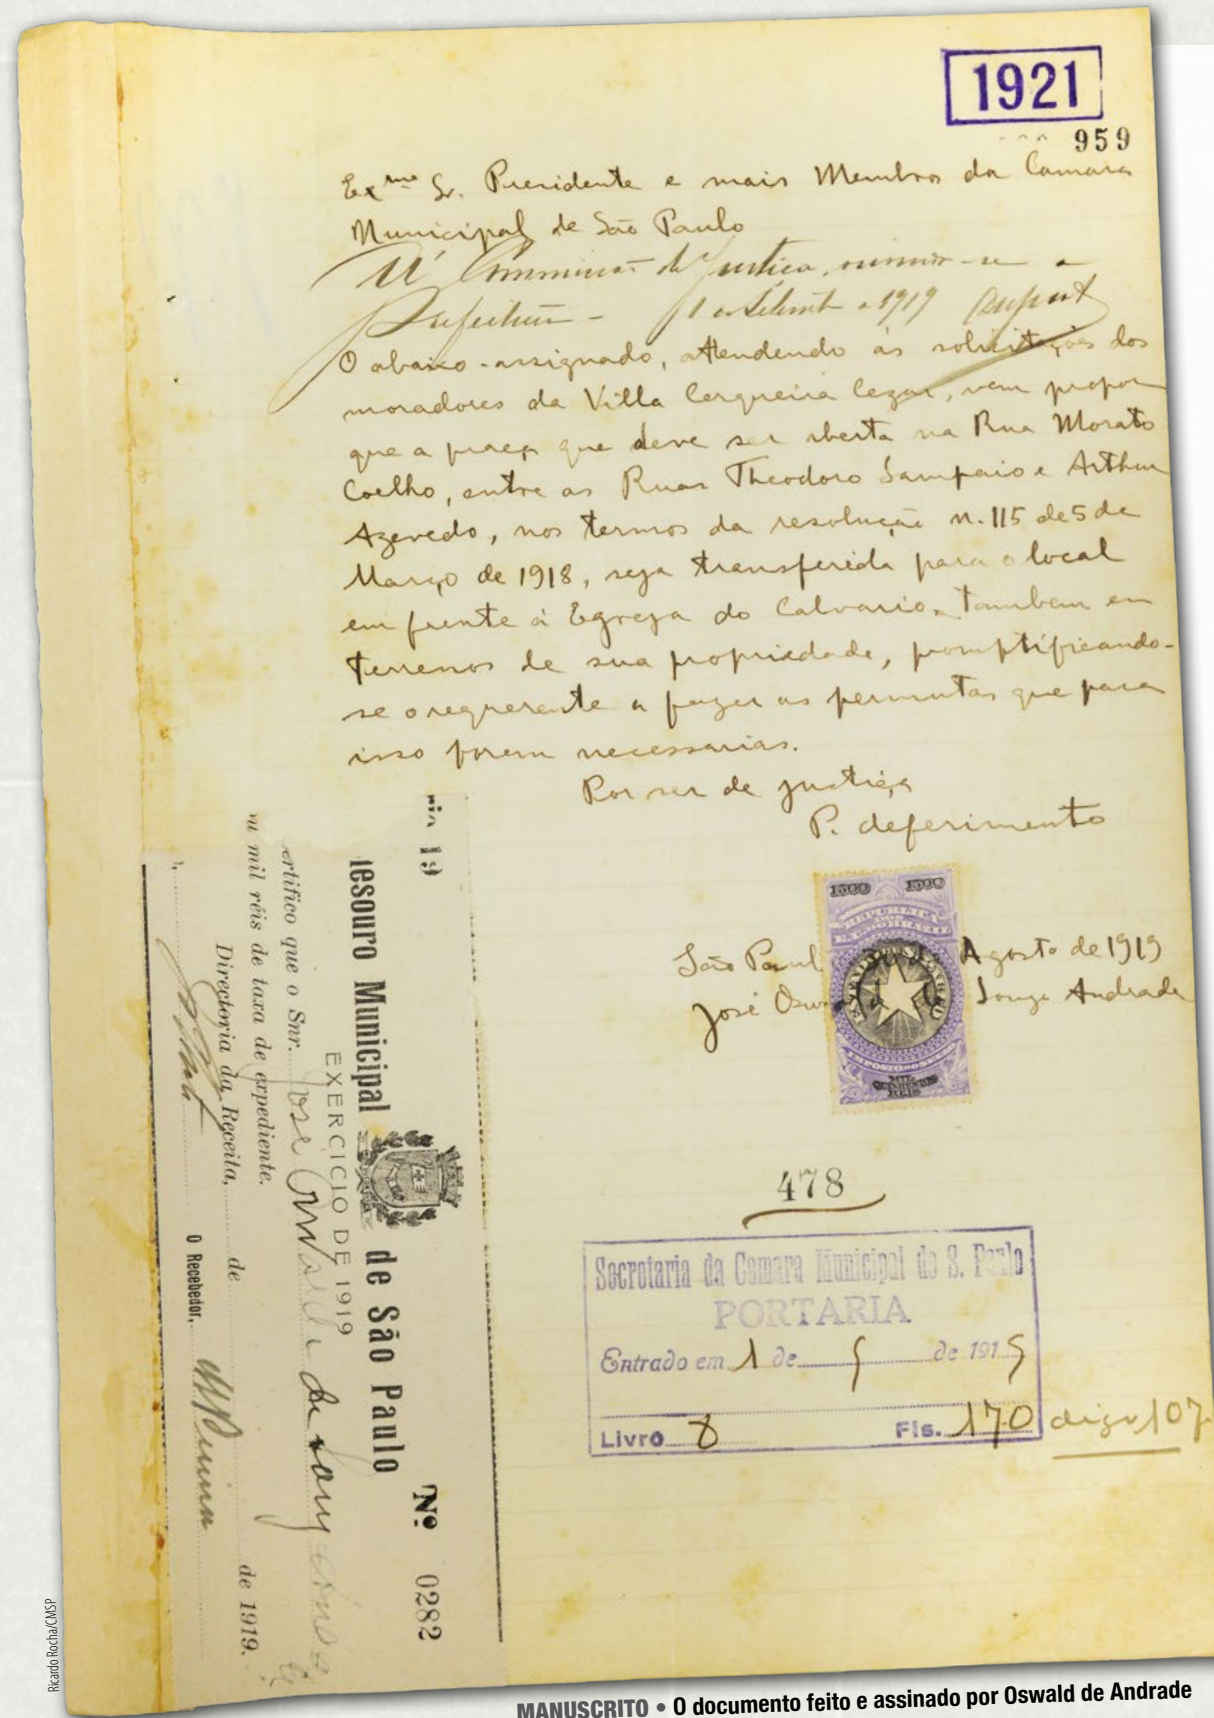 1921
959
Exmo Sr. Presidente e mais Membros da Camara
Municipal de São Paulo
Á Commissão de Justiça, ouvindo-se a
Prefeitura - 1 de Setemb de 1919
O abaixo-assignado, attendendo ás solicitações dos
moradores da Villa Cerqueira Cezar, vem propor
que a praça que deve ser aberta na Rua Morato
Coelho, entre as Ruas Theodoro Sampaio e Arthur
Azevedo, nos termos da resolução n. 115 de 5 de
Março de 1918, seja transferida para o local
em frente á Egreja do Calvario, tambem em
terrenos de sua propriedade, promptificando-
se o requerente a fazer as permutas que para
isso forem necessarias.
Por ser de justiça
P. deferimento
1500 1500
São Paul Agosto de 1919
José Osw Souza Andrade
IMPOSTO DO SELLO
MIL QUINHENTOS REIS
478
Secretaria da Camara Municipal de S. Paulo
PORTARIA
Entrado em 1 de 9 de 1919
Livro 8 Fls. 170 digo 107
ria 19
Tesouro Municipal de São Paulo Nº 0282
EXERCICIO DE 1919
ertifico que o Snr. José Oswald de Souza Andrade
mil réis de taxa de expediente.
Directoria da Receita, de de 1919.
O Recebedor,
Ricardo Rocha/CMSP
MANUSCRITO • O documento feito e assinado por Oswald de Andrade